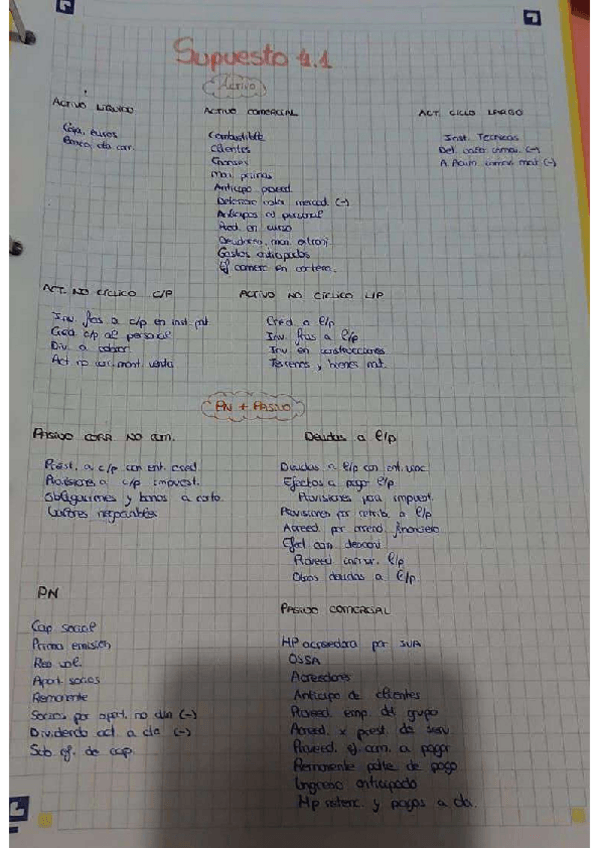 Supuesto 1.1
Activo
ACTIVO LÍQUIDO
Caja, euros
Banco, cta corr.
ACTIVO COMERCIAL
Combustible
Clientes
Envases
Mat primas
Anticipo proveed.
Deterioro valor mercad. (-)
Anticipos al personal
Prod. en curso
Gastos anticipados
Ef comerc en cartera.
ACT. CICLO LARGO
Inst. Técnicas
A. Acum inmov mat (-)
ACT. NO CÍCLICO C/P
Inv fras a c/p en inst pat
Cred c/p al personal
Div. a cobrar
Act no corr. mant venta
ACTIVO NO CÍCLICO L/P
Cred a l/p
Inv fras a l/p
Inv en construcciones
Terrenos y bienes nat.
PN + PASIVO
PASIVO CORR NO COM.
Prést. a c/p con ent. cred.
Provisiones a c/p impuest.
Obligaciones y bonos a corto.
Valores negociables
Deudas a l/p
Deudas a l/p con ent. vinc.
Efectos a pagar l/p
Provisiones para impuest.
Provisiones por retrib. a l/p
Acreed. por arrend. financiero
Proveed inmov. l/p
Otras deudas a l/p
PN
Cap social
Prima emisión
Res vol.
Aport. socios
Remanente
Socios por aport. no din (-)
Dividendo act a cta (-)
Sub of. de cap.
PASIVO COMERCIAL
HP acreedora por IVA
OSSA
Acreedores
Anticipo de clientes
Proveed. emp. del grupo
Acreed. x prest. de serv
Proveed. ef. com. a pagar
Remanente pdte de pago
Ingreso anticipado
Hp retenc. y pagos a cta.